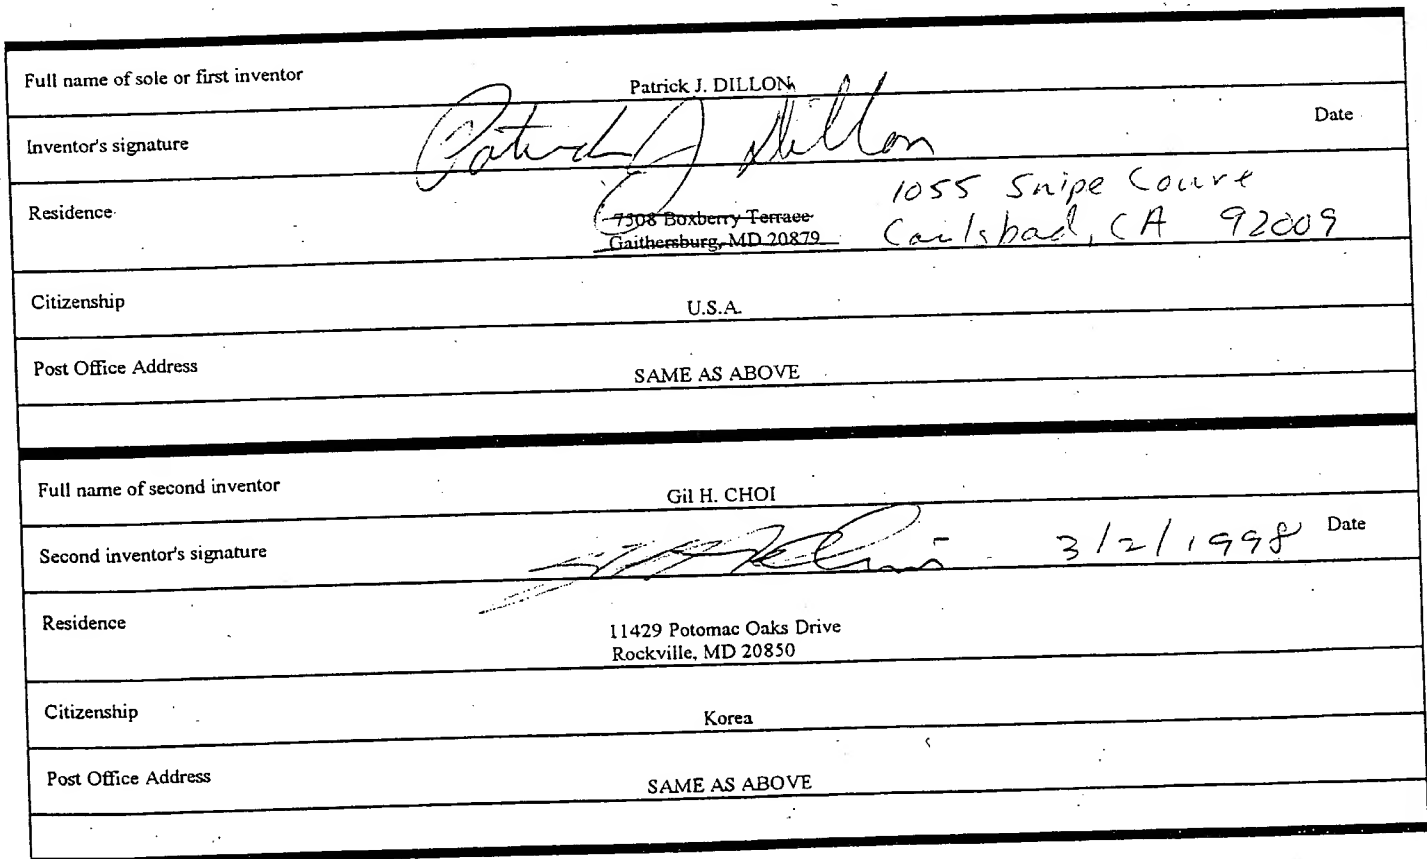 Full name of sole or first inventor
Patrick J. DILLON
Inventor's signature
Patrick J Dillon
Date
Residence
7508 Boxberry Terrace
Gaithersburg, MD 20879
1055 Snipe Court
Carlsbad, CA 92009
Citizenship
U.S.A.
Post Office Address
SAME AS ABOVE
Full name of second inventor
Gil H. CHOI
Second inventor's signature
3/2/1998
Date
Residence
11429 Potomac Oaks Drive
Rockville, MD 20850
Citizenship
Korea
Post Office Address
SAME AS ABOVE